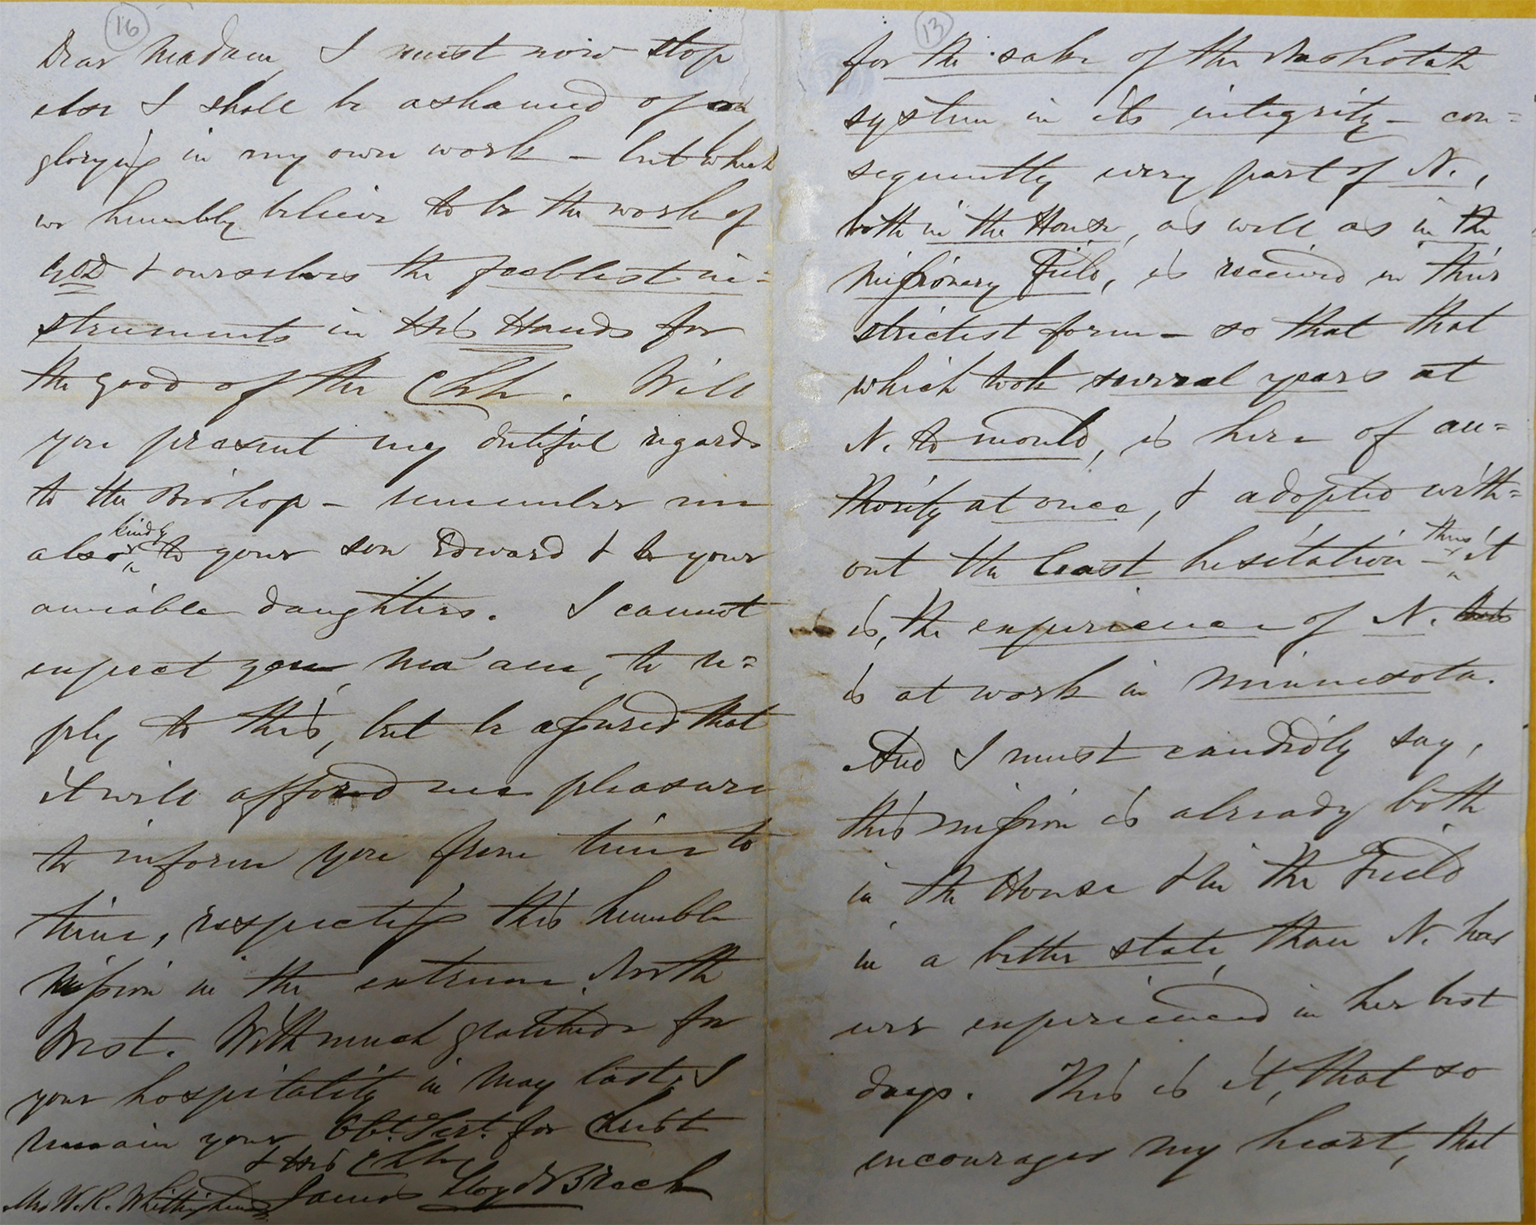 16
Dear Madam, I must now stop
else I shall be ashamed of
glorying in my own work – but which
we humbly believe to be the work of
God & ourselves the feeblest in=
struments in His Hands for
the good of the Chh. Will
you present my dutiful regards
to the Bishop – remember me
also kindly to your son Edward & to your
amiable daughters. I cannot
expect you, Ma'am, to re=
ply to this, but be assured that
it will afford me pleasure
to inform you from time to
time, respectg this humble
Mission in the extreme North
West. With much gratitude for
your hospitality in May last, I
remain your Obt. Servt. for Christ
& His Chh
James Lloyd Breck
Mrs W. R. Whittingham
13
for the sake of the Nashotah
system in its integrity – con=
sequently every part of N.,
both in the House, as well as in the
Missionary Field, is received in their
strictest form – so that that
which took several years at
N. to mould, is here of au=
thority at once, & adopted with=
out the least hesitation – thus it
is, the experience of N.
is at work in Minnesota.
And I must candidly say,
this mission is already both
in the House & in the Field
in a better state, than N. has
ever experienced in her best
days. This is it, that so
encourages my heart, that